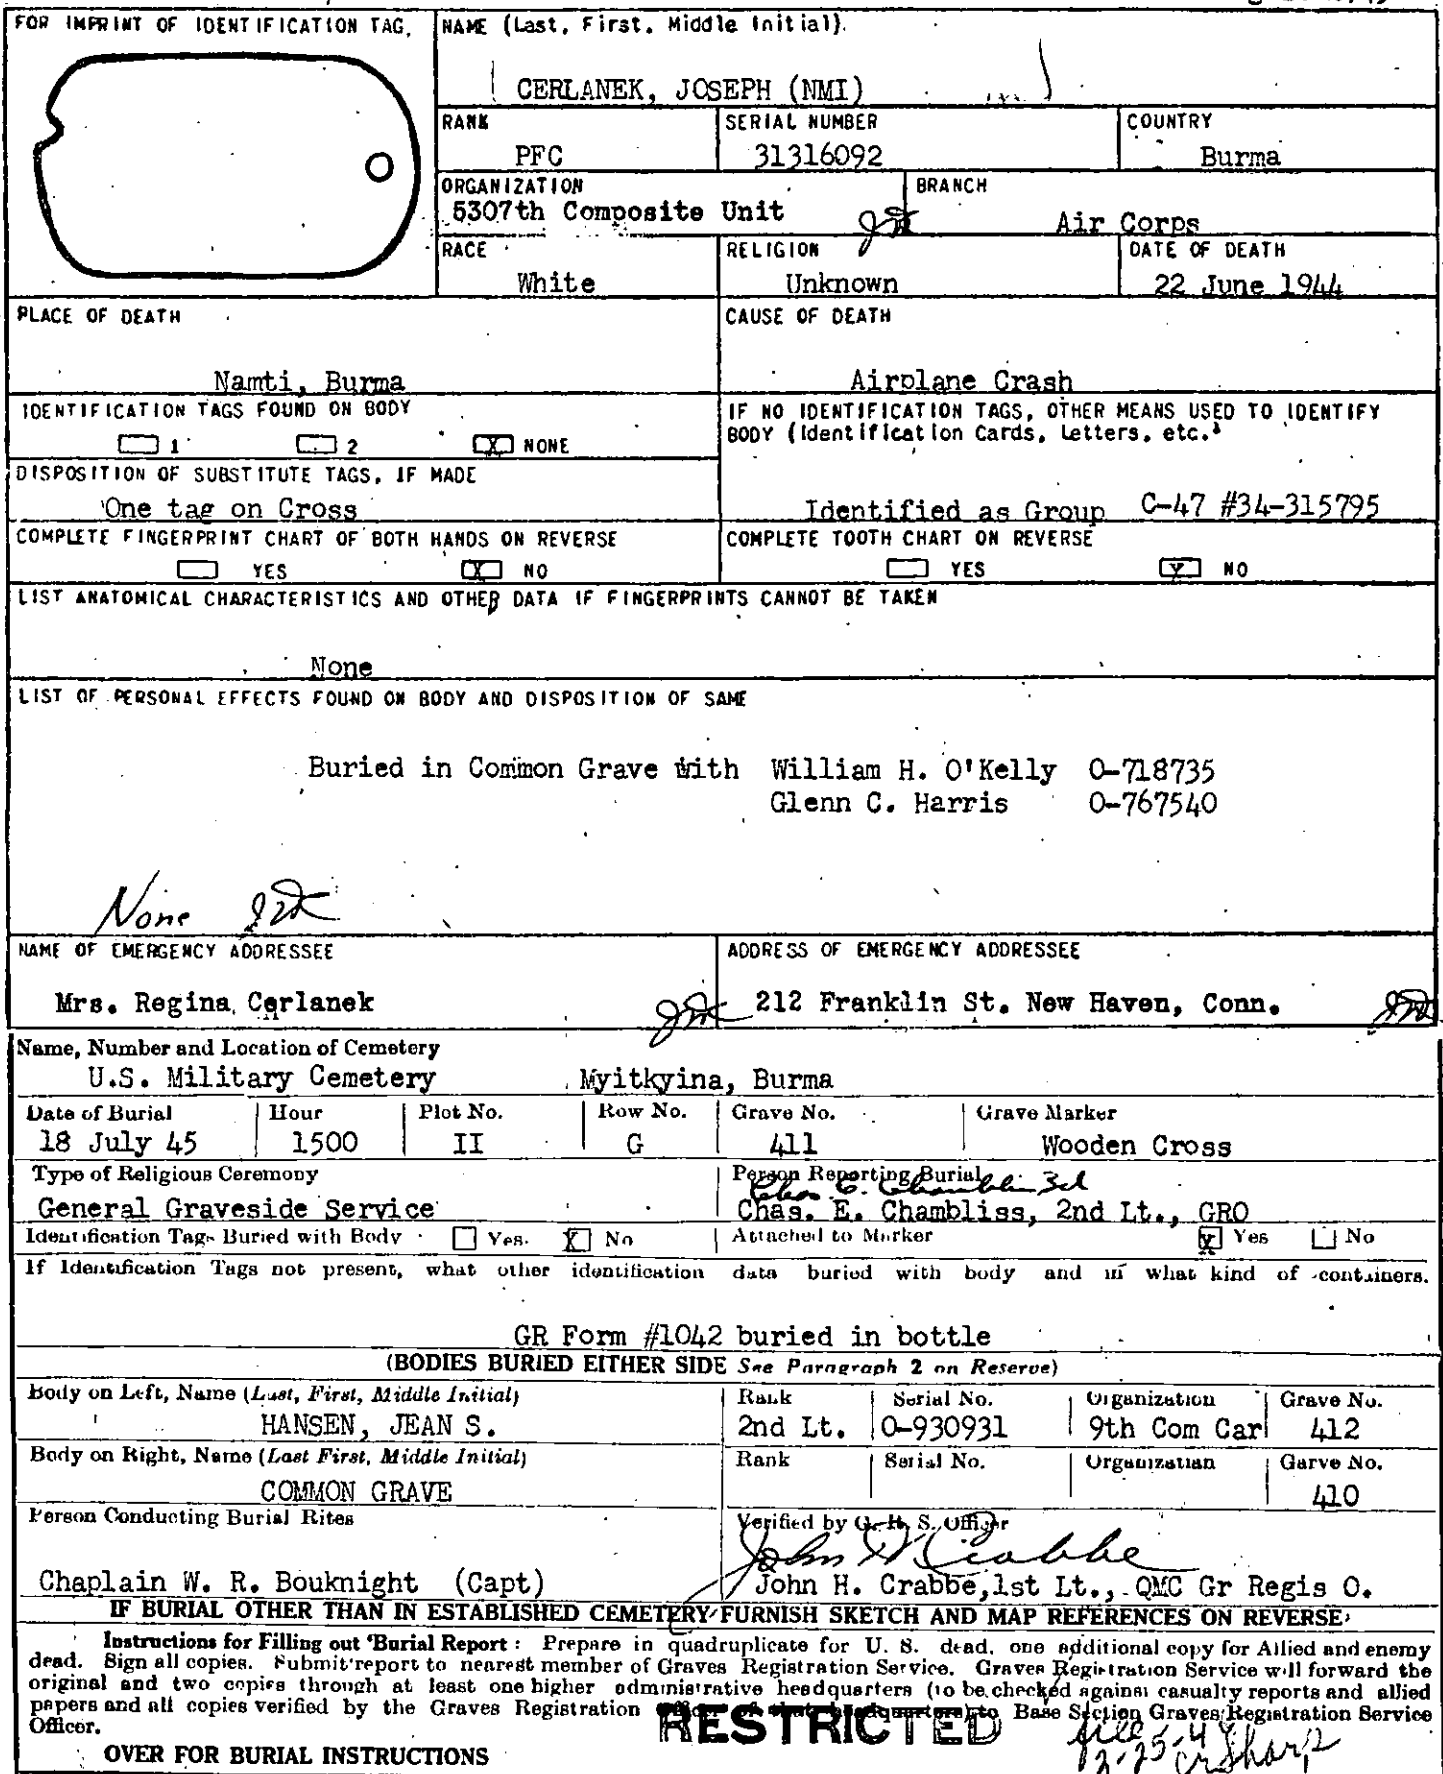 FOR IMPRINT OF IDENTIFICATION TAG.
NAME (Last, First, Middle Initial).
CERLANEK, JOSEPH (NMI)
RANK SERIAL NUMBER COUNTRY
PFC 31316092 Burma
ORGANIZATION BRANCH
5307th Composite Unit Air Corps
RACE RELIGION DATE OF DEATH
White Unknown 22 June 1944
PLACE OF DEATH CAUSE OF DEATH
Namti, Burma Airplane Crash
IDENTIFICATION TAGS FOUND ON BODY
1 2 X NONE
IF NO IDENTIFICATION TAGS, OTHER MEANS USED TO IDENTIFY
BODY (Identification Cards, Letters, etc.)
DISPOSITION OF SUBSTITUTE TAGS, IF MADE
One tag on Cross Identified as Group C-47 #34-315795
COMPLETE FINGERPRINT CHART OF BOTH HANDS ON REVERSE COMPLETE TOOTH CHART ON REVERSE
YES X NO YES X NO
LIST ANATOMICAL CHARACTERISTICS AND OTHER DATA IF FINGERPRINTS CANNOT BE TAKEN
None
LIST OF PERSONAL EFFECTS FOUND ON BODY AND DISPOSITION OF SAME
Buried in Common Grave with William H. O'Kelly O-718735
Glenn C. Harris O-767540
None
NAME OF EMERGENCY ADDRESSEE ADDRESS OF EMERGENCY ADDRESSEE
Mrs. Regina Cerlanek 212 Franklin St. New Haven, Conn.
Name, Number and Location of Cemetery
U.S. Military Cemetery Myitkyina, Burma
Date of Burial Hour Plot No. Row No. Grave No. Grave Marker
18 July 45 1500 II G 411 Wooden Cross
Type of Religious Ceremony Person Reporting Burial
Chas. E. Chambliss
General Graveside Service Chas. E. Chambliss, 2nd Lt., GRO
Identification Tags Buried with Body Yes. X No Attached to Marker X Yes No
If Identification Tags not present, what other identification data buried with body and in what kind of containers.
GR Form #1042 buried in bottle
(BODIES BURIED EITHER SIDE See Paragraph 2 on Reserve)
Body on Left, Name (Last, First, Middle Initial) Rank Serial No. Organization Grave No.
HANSEN, JEAN S. 2nd Lt. O-930931 9th Com Car 412
Body on Right, Name (Last First, Middle Initial) Rank Serial No. Organizatian Garve No.
COMMON GRAVE 410
Person Conducting Burial Rites Verified by G. R. S. Officer
John H Crabbe
Chaplain W. R. Bouknight (Capt) John H. Crabbe, 1st Lt., QMC Gr Regis O.
IF BURIAL OTHER THAN IN ESTABLISHED CEMETERY FURNISH SKETCH AND MAP REFERENCES ON REVERSE
Instructions for Filling out Burial Report : Prepare in quadruplicate for U. S. dead, one additional copy for Allied and enemy
dead. Sign all copies. Submit report to nearest member of Graves Registration Service. Graves Registration Service will forward the
original and two copies through at least one higher administrative headquarters (to be checked against casualty reports and allied
papers and all copies verified by the Graves Registration headquarters) to Base Section Graves Registration Service
Officer.
RESTRICTED
OVER FOR BURIAL INSTRUCTIONS